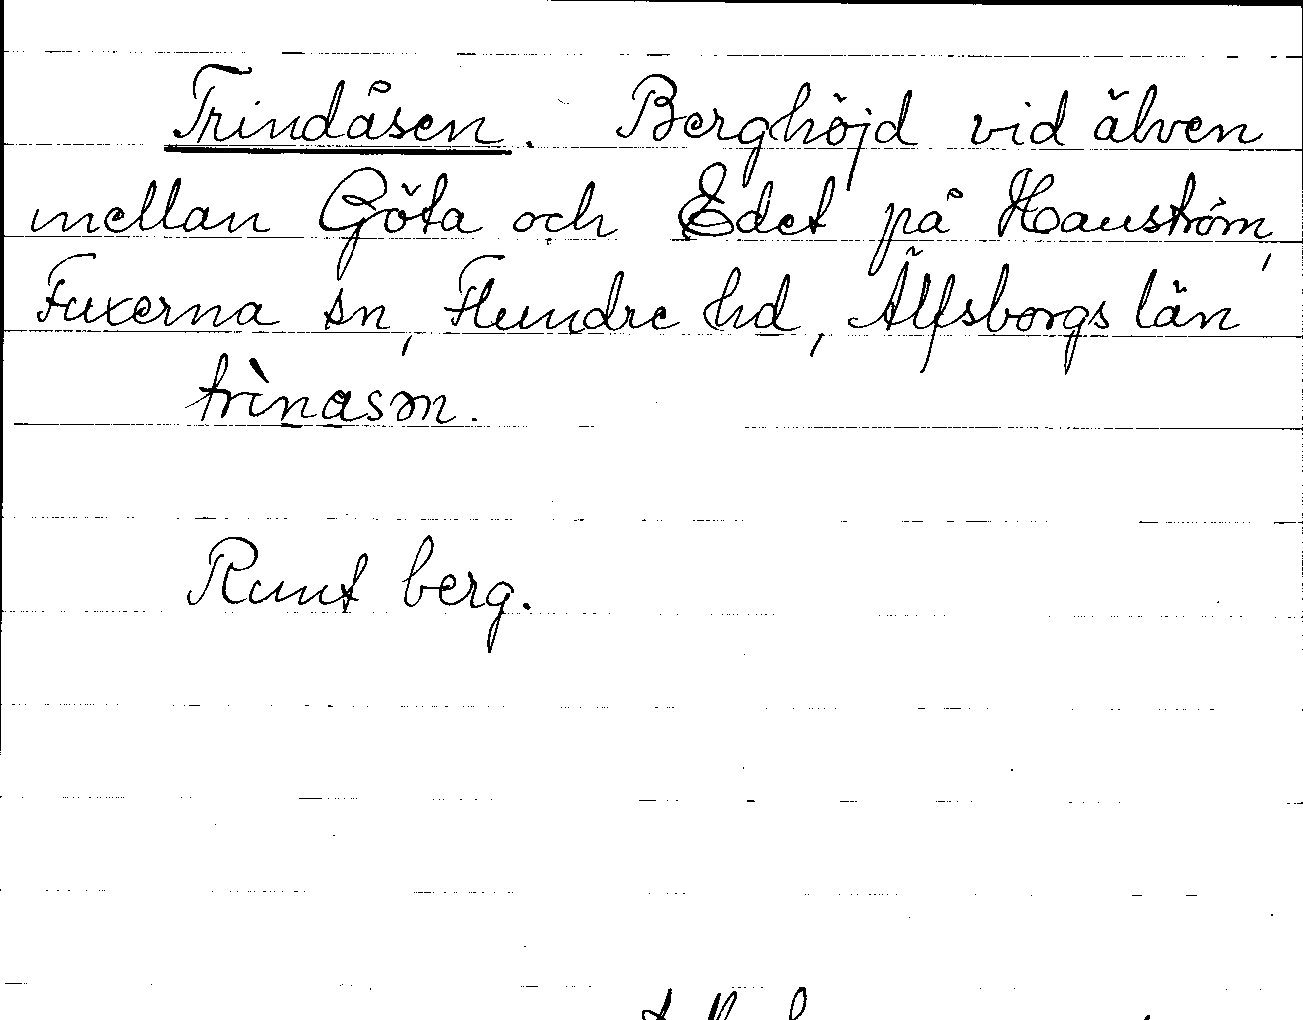 Trindåsen. Berghöjd vid älven
mellan Göta och Edet på Hanström,
Fuxerna sn, Flundre hd, Älfsborgs län
trìnasm.
Runt berg.